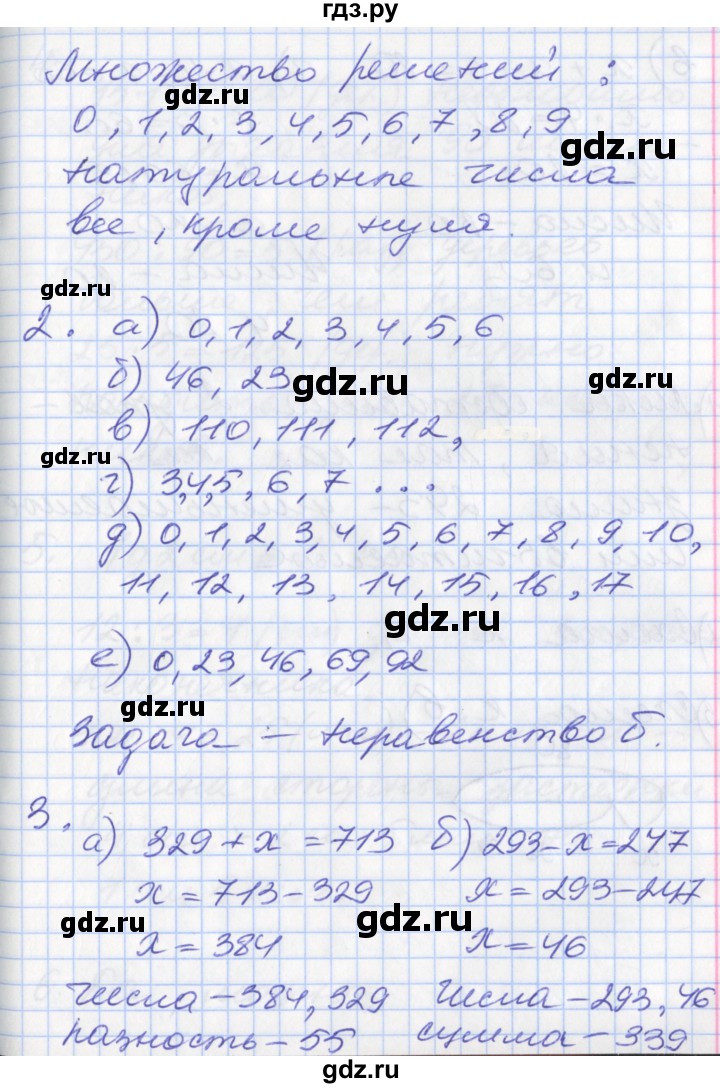 гдз.ру
Множество решений :
0, 1, 2, 3, 4, 5, 6, 7, 8, 9
натуральные числа
все, кроме нуля.
2. а) 0, 1, 2, 3, 4, 5, 6
б) 46, 23
в) 110, 111, 112,
г) 3,4,5, 6, 7 ...
д) 0, 1, 2, 3, 4, 5, 6, 7, 8, 9, 10,
11, 12, 13, 14, 15, 16, 17
е) 0, 23, 46, 69, 92
Задача – неравенство б.
3. а) 329 + x = 713 б) 293 – x = 247
x = 713 – 329 x = 293 – 247
x = 384 x = 46
числа – 384, 329 числа – 293, 46
разность – 55 сумма – 339
gdz.ru
gdz.ru
gdz.ru
gdz.ru
gdz.ru
gdz.ru
gdz.ru
gdz.ru
gdz.ru
gdz.ru
gdz.ru
gdz.ru
gdz.ru